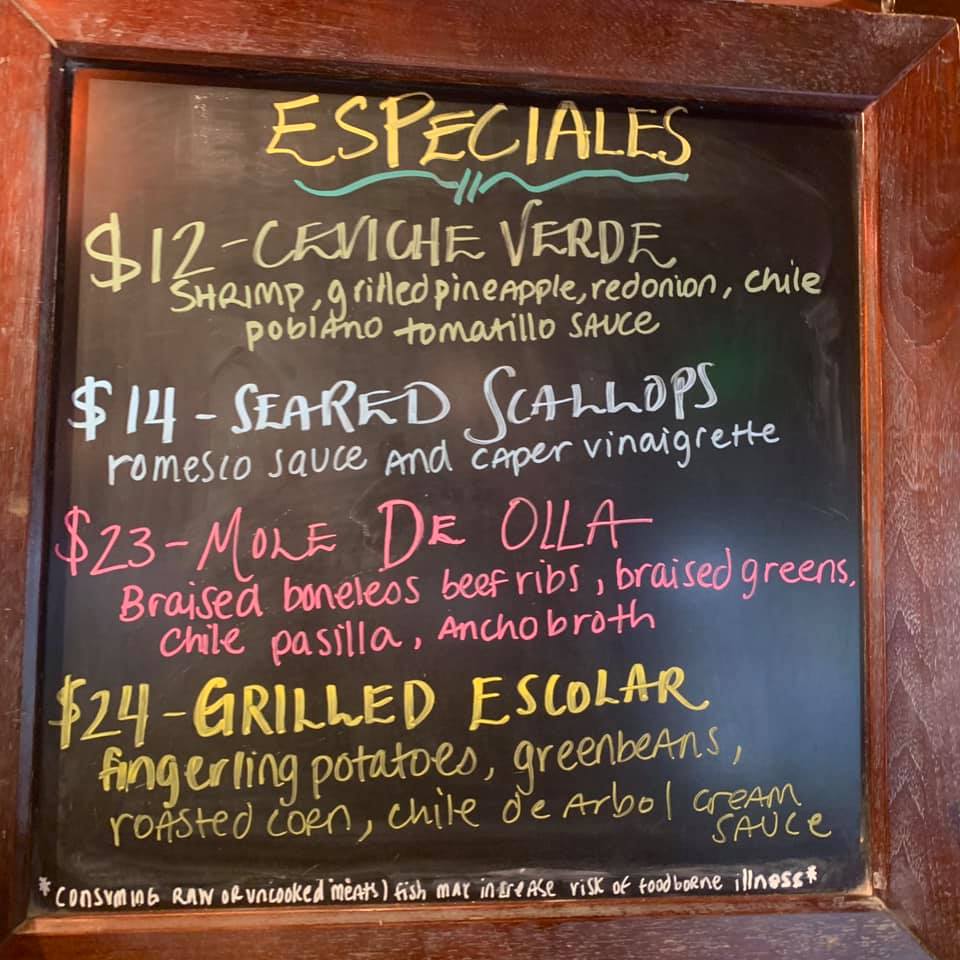 ESPECIALES
$12 - CEVICHE VERDE
SHRIMP, grilled pineapple, red onion, chile
poblano tomatillo SAUCE
$14 - SEARED SCALLOPS
romesco sauce and caper vinaigrette
$23 - MOLE DE OLLA
Braised boneless beef ribs, braised greens,
chile pasilla, Ancho broth
$24 - GRILLED ESCOLAR
fingerling potatoes, greenbeans,
roasted corn, chile de Arbol cream
SAUCE
*CONSUMING RAW OR UNCOOKED MEATS) fish may increase risk of foodborne illness*